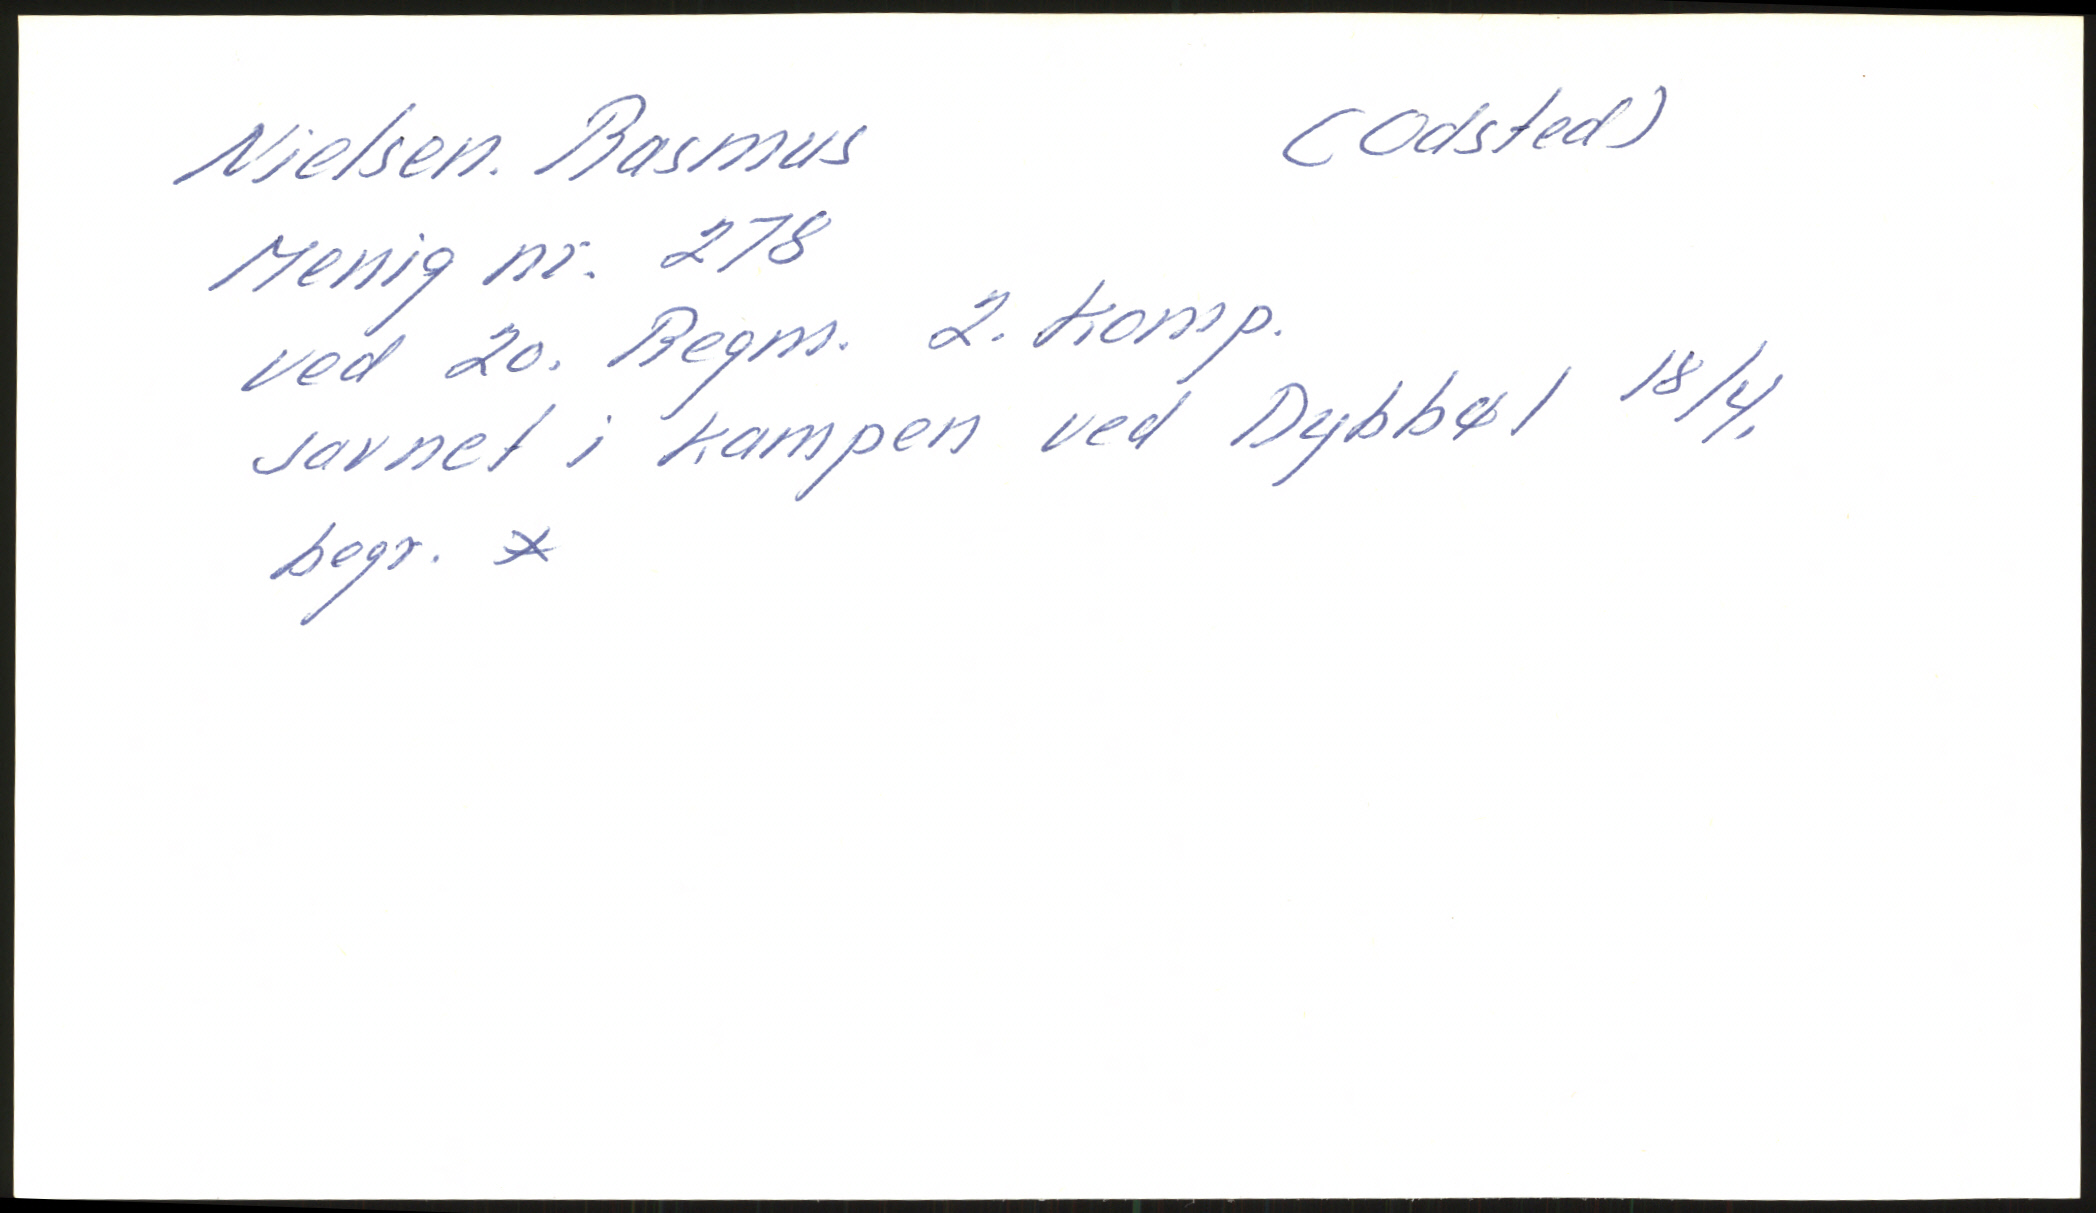 Nielsen. Rasmus (Odsted)
Menig nr. 278
ved 20. Regm. 2. Komp.
savnet i Kampen ved Dybbøl 18/4.
begr. *